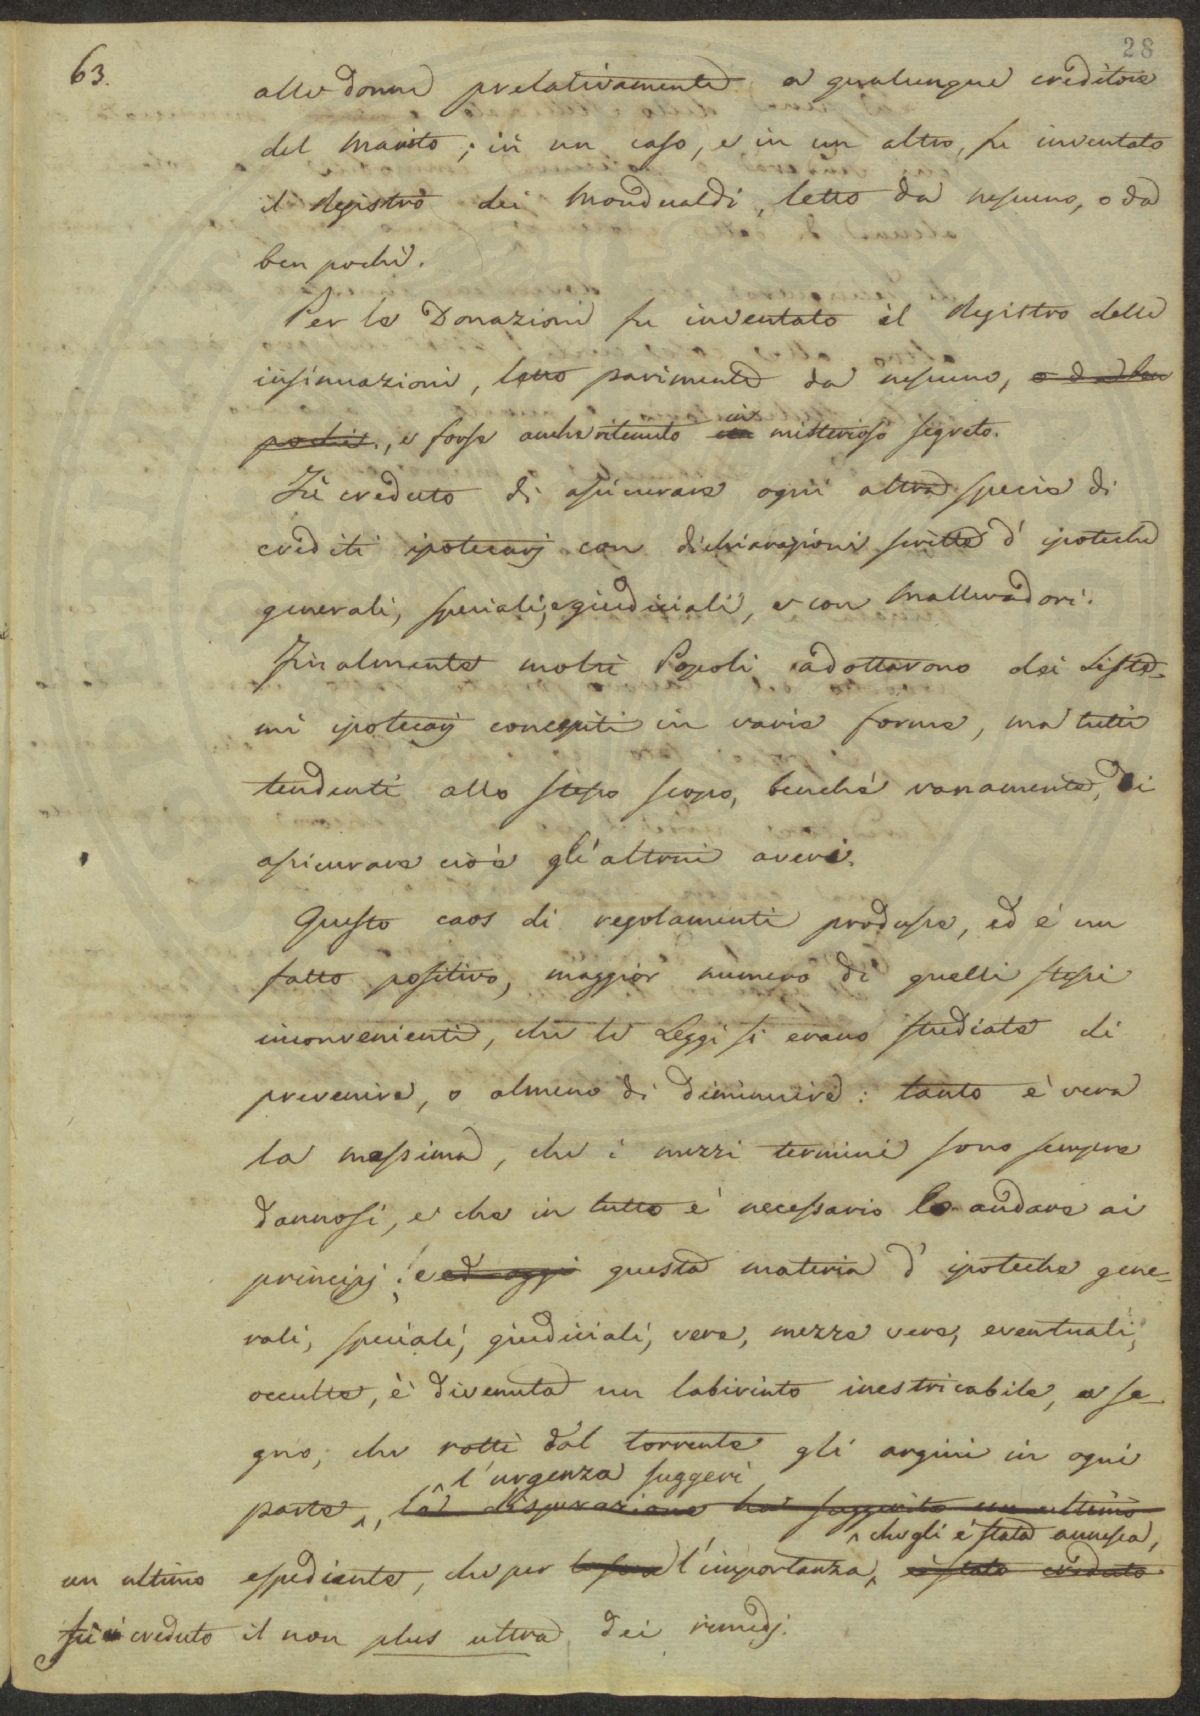 63.
28
alle donne prelativamente a qualunque creditore
del marito; in un caso, e in un altro, fu inventato
il Registro dei Mondualdi, letto da nessuno, o da
ben pochi.
Per le Donazioni fu inventato il Registro delle
insinuazioni, letto parimente da nessuno, o da ben
pochi, e forse anche ritenuto in misterioso segreto.
Fù creduto di assicurare ogni altra specie di
crediti ipotecarj con dichiarazioni scritte d'ipoteche
generali, speciali, e giudiciali, e con Mallevadori.
Finalmente molti Popoli adottarono dei Siste-
mi ipotecarj concepiti in varie forme, ma tutti
tendenti allo stesso scopo, benchè vanamente, di
assicurare cioè gli altrui averi.
Questo caos di regolamenti produsse, ed è un
fatto positivo, maggior numero di quelli stessi
inconvenienti, che le Leggi si erano studiate di
prevenire, o almeno di diminuire: tanto è vera
la massima, che i mezzi termini sono sempre
dannosi, e che in tutto è necessario lo andare ai
principj! e ed oggi questa materia d'ipoteche gene-
rali, speciali, giudiciali, vere, mezze vere, eventuali,
occulte, è divenuta un labirinto inestricabile, a se-
gno, che rotti dal torrente gli argini in ogni
l'urgenza suggerì
parte, la disperazione ha suggerito un ultimo
che gli è stata annessa,
un ultimo espediente, che per l'importanza è stato creduto
fù creduto il non plus ultra dei rimedj.